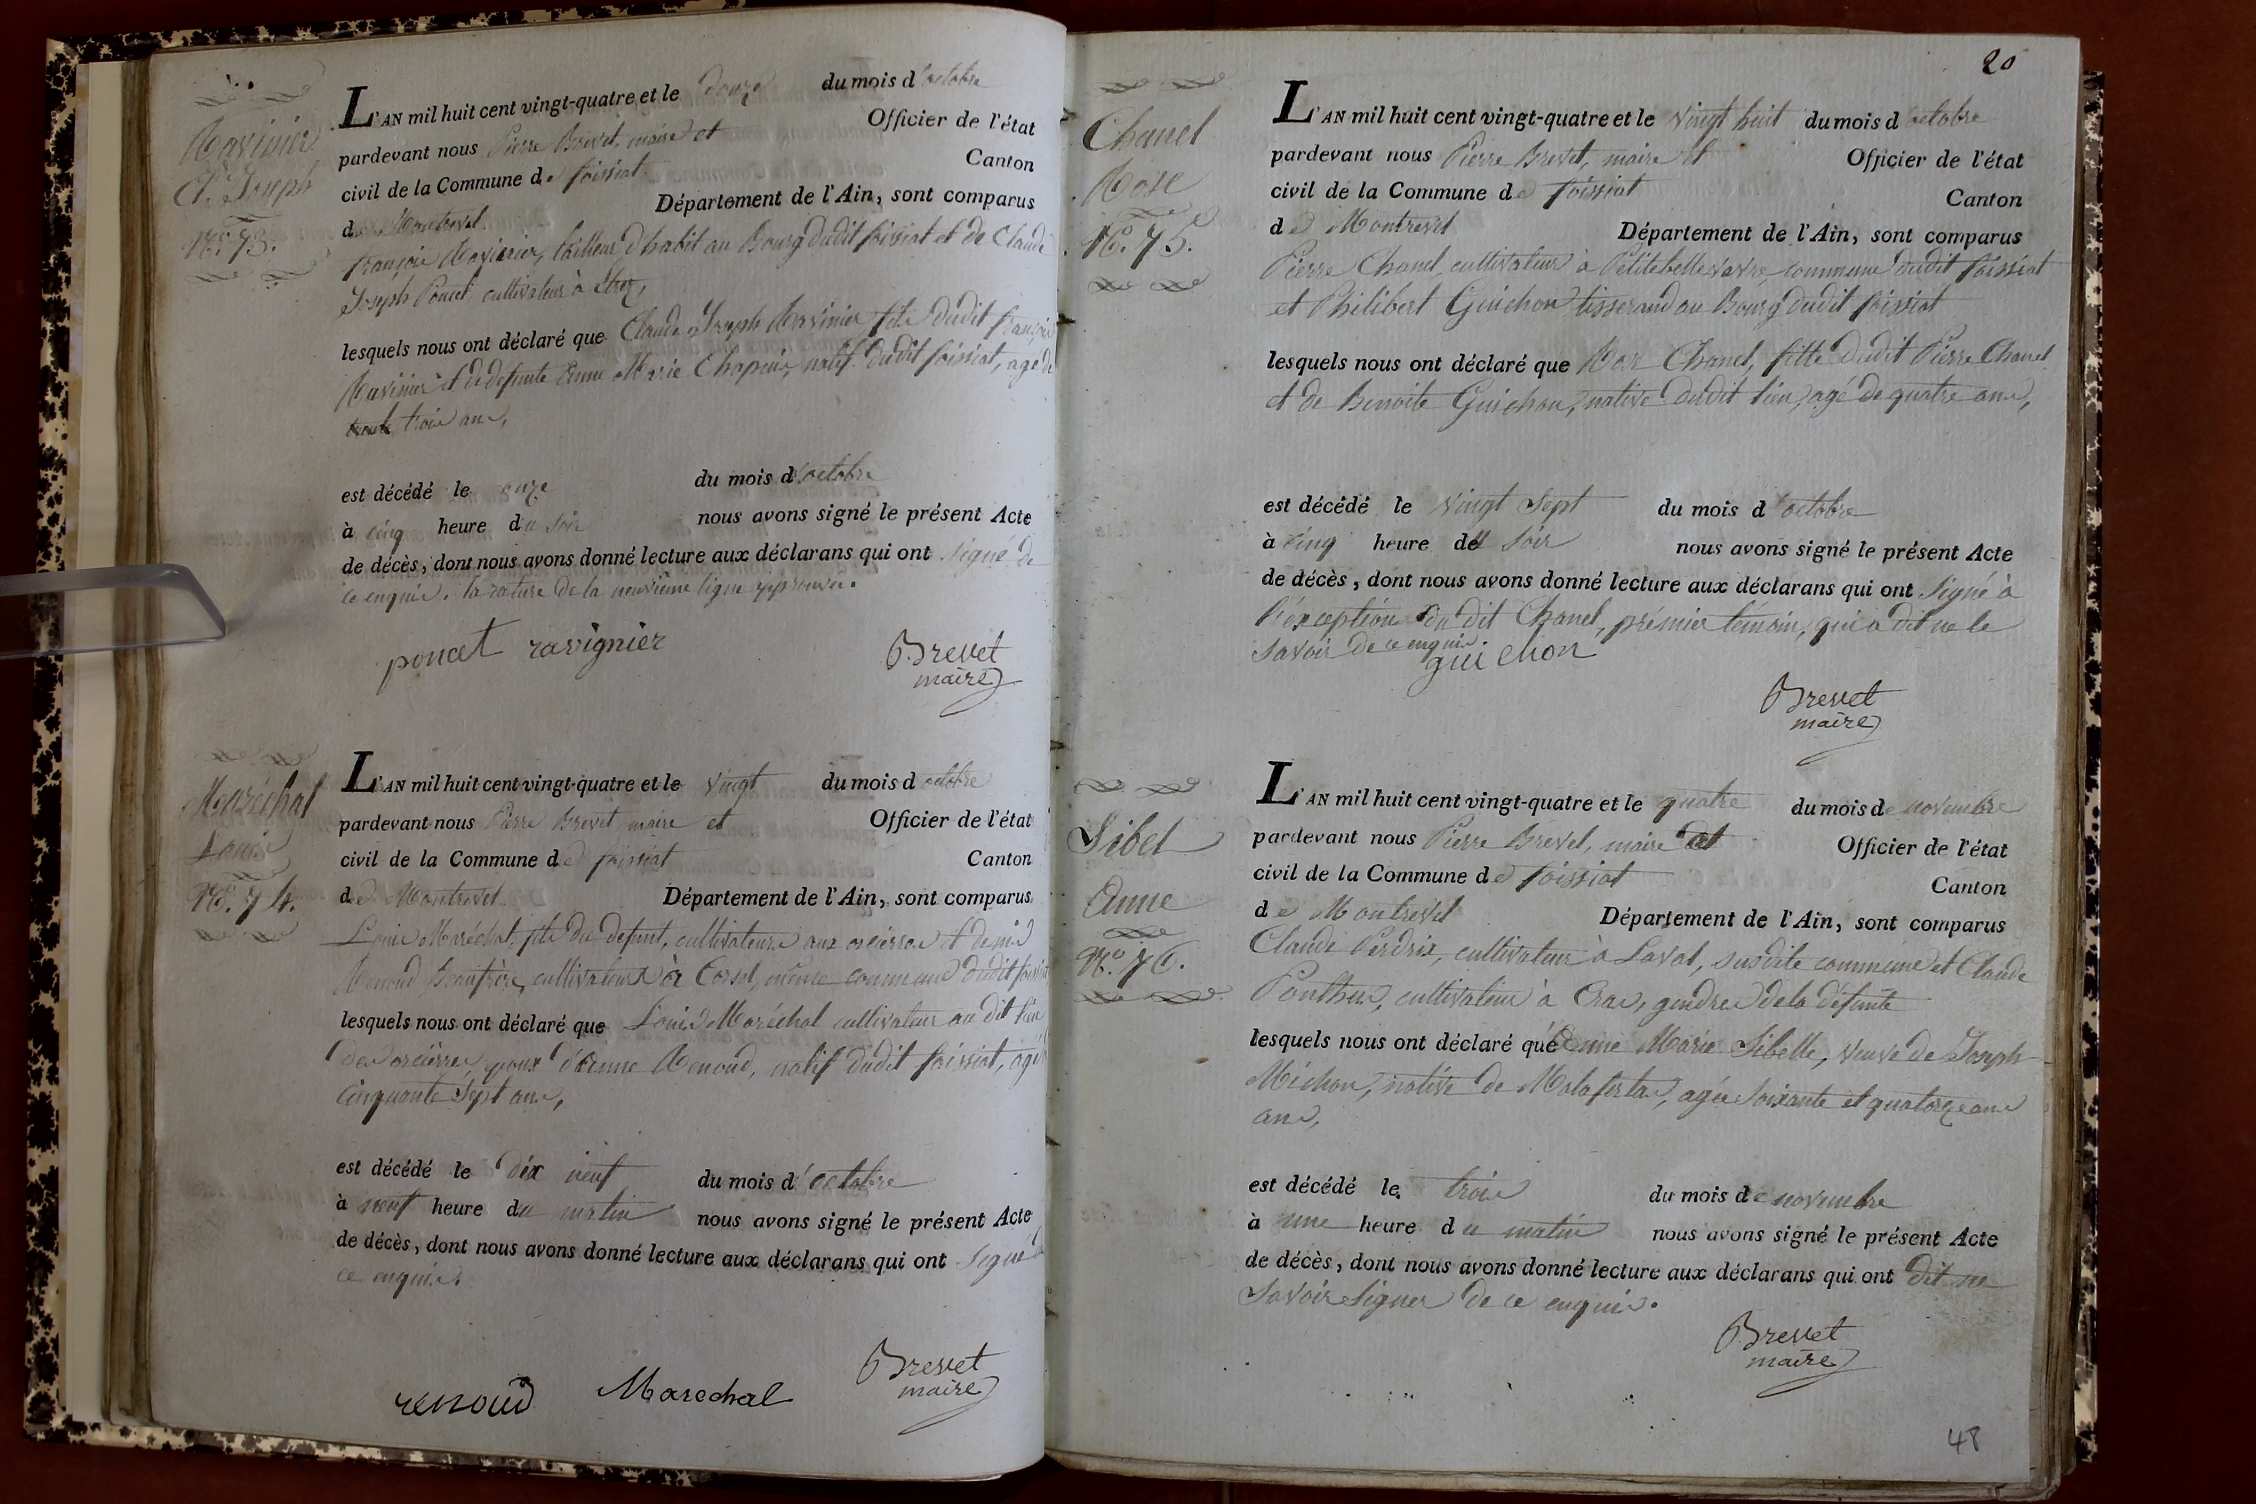 Ravinier
Cl. Joseph
N.o 73.
L'AN mil huit cent vingt-quatre et le douze du mois d'octobre
pardevant nous Pierre Brevet, maire et Officier de l'état
civil de la Commune de foissiat Canton
de Montrevel Département de l'Ain, sont comparus
françois Ravinier, tailleur d'habit au Bourg dudit foissiat et de Claude
Joseph Poncet cultivateur à Etrez,
lesquels nous ont déclaré que Claude Joseph Ravinier fils dudit françois
Ravinier et de defunte Anne Marie Chapuis, natif dudit foissiat, agé de
trois ans,
est décédé le onze du mois d'octobre
à cinq heure du soir nous avons signé le présent Acte
de décès, dont nous avons donné lecture aux déclarans qui ont signé de
ce enquis. la rature de la neuvième ligne approuvée.
poncet ravignier Brevet
maire
Maréchal
Louis
N.o 74.
L'AN mil huit cent vingt-quatre et le vingt du mois d octobre
pardevant nous Pierre Brevet maire et Officier de l'état
civil de la Commune de foissiat Canton
de Montrevel Département de l'Ain, sont comparus
Louis Maréchal, fils du defunt, cultivateur aux orcières et denis
Renoud Beaufrère, cultivateur à Corsel, même commune dudit foissiat
lesquels nous ont déclaré que Louis Maréchal cultivateur au dit lieu
des orcières, epoux d'Anne Renoud, natif dudit foissiat, agé
cinquante sept ans,
est décédé le dix neuf du mois d'octobre
à neuf heure du matin nous avons signé le présent Acte
de décès, dont nous avons donné lecture aux déclarans qui ont signé
ce enquis.
renoud Marechal Brevet
maire
20
Chanel
Rose
N.o 75.
L'AN mil huit cent vingt-quatre et le vingt huit du mois d'octobre
pardevant nous Pierre Brevet, maire et Officier de l'état
civil de la Commune de foissiat Canton
de Montrevel Département de l'Ain, sont comparus
Pierre Chanel, cultivateur à Petitebellevavre commune dudit foissiat
et Philibert Guichon tisserand au Bourg dudit foissiat
lesquels nous ont déclaré que Rose Chanel, fille dudit Pierre Chanel
et de Benoite Guichon, native dudit lieu, agé de quatre ans,
est décédé le vingt sept du mois d'octobre
à cinq heure du soir nous avons signé le présent Acte
de décès, dont nous avons donné lecture aux déclarans qui ont signé à
l'éxception du dit Chanel, prémier témoin, qui a dit ne le
savoir de ce enquis.
guichon
Brevet
maire
Sibel
Anne
N.o 76.
L'AN mil huit cent vingt-quatre et le quatre du mois de novembre
pardevant nous Pierre Brevet, maire et Officier de l'état
civil de la Commune de foissiat Canton
de Montrevel Département de l'Ain, sont comparus
Claude Perdrix, cultivateur à Laval, susdite commune et Claude
Ponthus, cultivateur à Cras, gendre de la défunte
lesquels nous ont déclaré que Anne Marie Sibelle, veuve de Joseph
Michon, native de Malafretas, agée soixante et quatorze ans
ans,
est décédé le trois du mois de novembre
à une heure du matin nous avons signé le présent Acte
de décès, dont nous avons donné lecture aux déclarans qui ont dit ne
savoir signer de ce enquis.
Brevet
maire
48